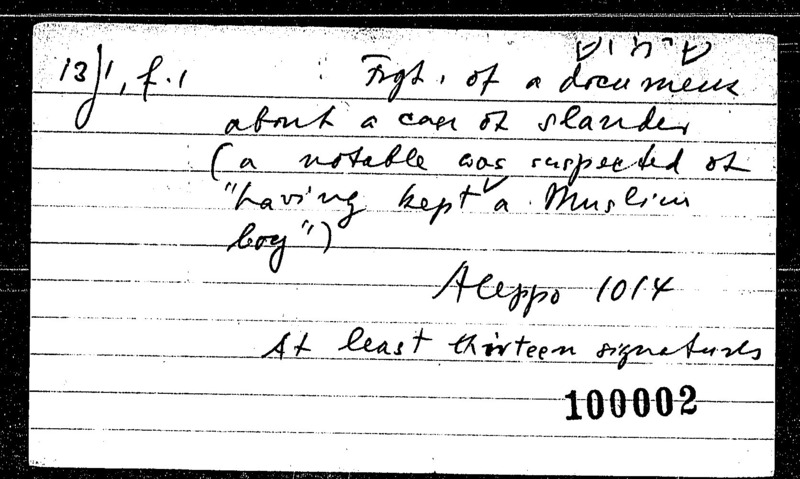 13J1, f. 1 : Frgt. of a document
about a case of slander
(a notable was suspected of
"having kept a Muslim
boy")
Aleppo 1014
At least thirteen signatures
100002